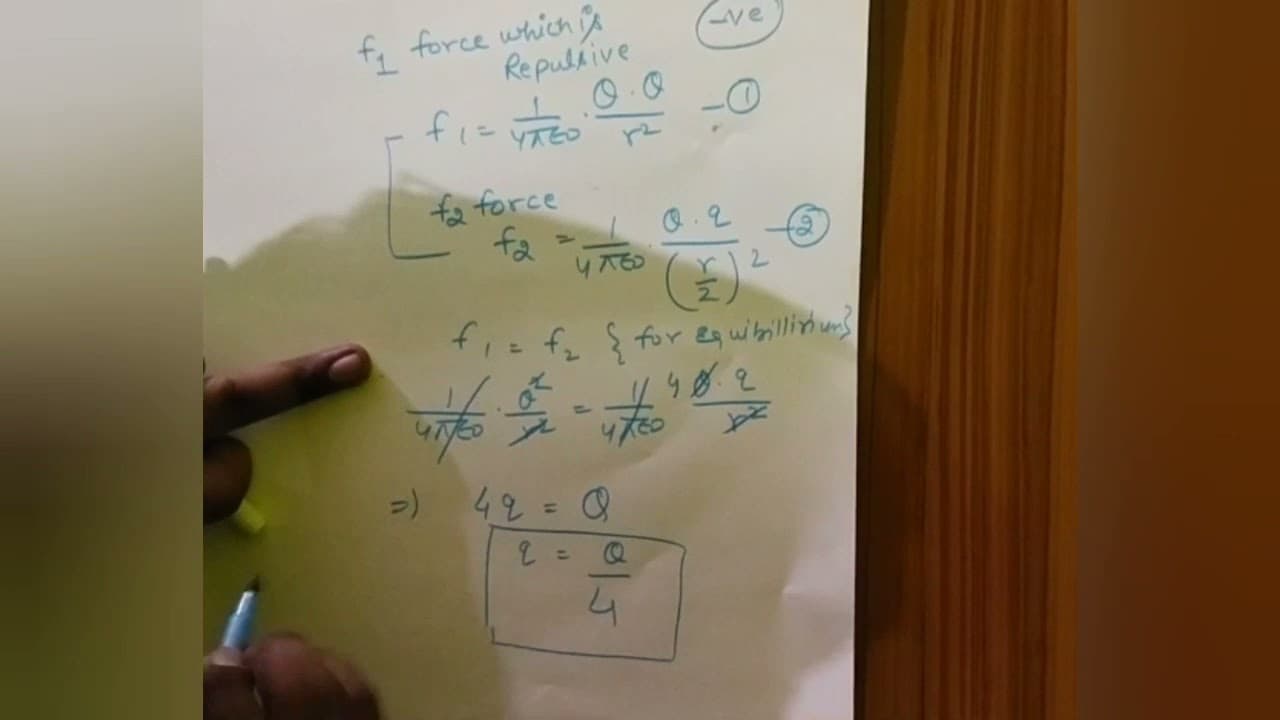 f1 force which is -ve
Repulsive
f1 = 1/4π∈0 . Q.Q/r² -①
f2 force
f2 = 1/4π∈0 . Q.q/(r/2)² -②
f1 = f2 {for equibillirium}
1/4π∈0 . Q²/r² = 1/4π∈0 4Q.q/r²
=) 4q = Q
q = Q/4